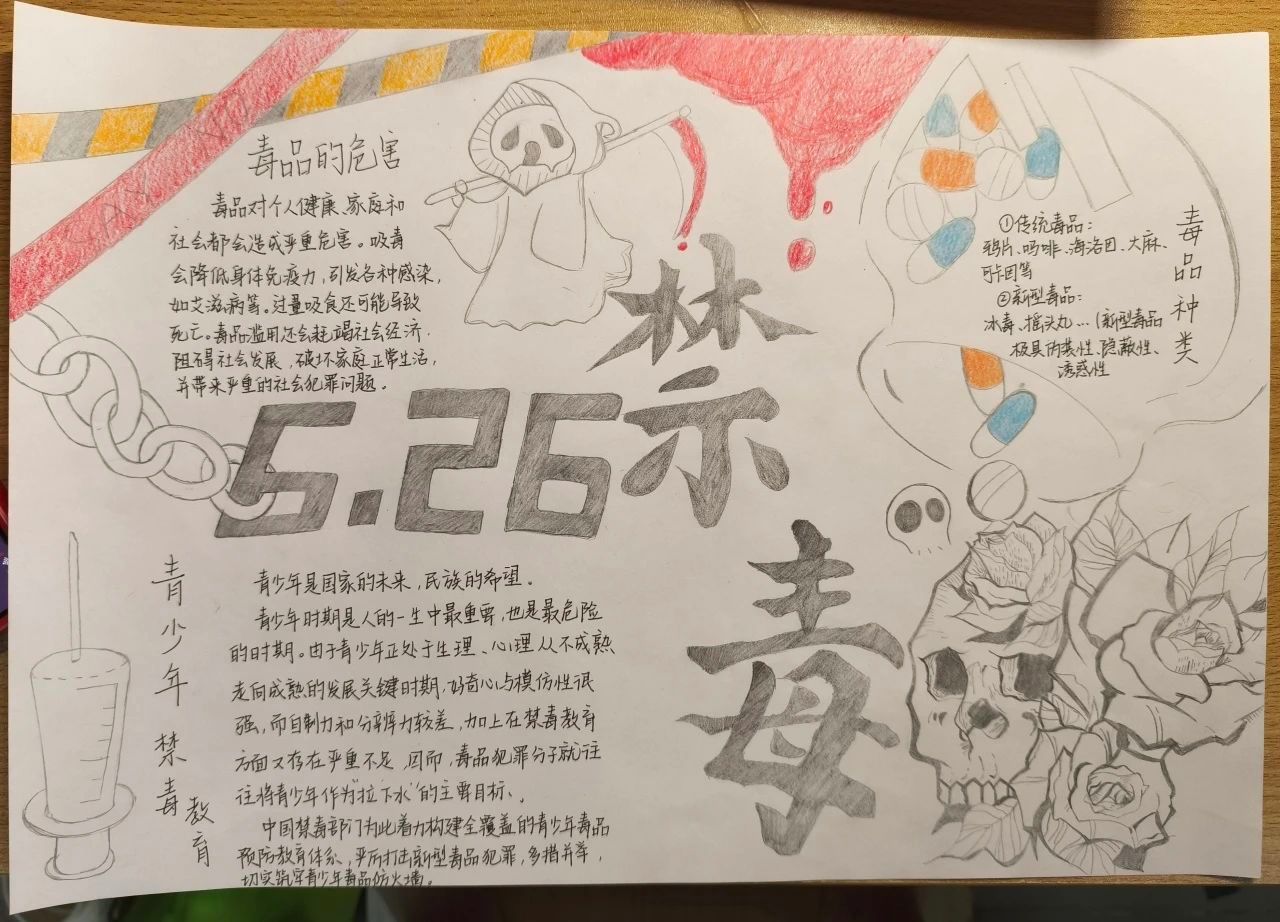 毒品的危害
毒品对个人健康、家庭和
社会都会造成严重危害。吸毒
会降低身体免疫力,引发各种感染,
如艾滋病等。过量吸食还可能导致
死亡。毒品滥用还会耗竭社会经济,
阻碍社会发展,破坏家庭正常生活,
并带来严重的社会犯罪问题。
毒品种类
①传统毒品:
鸦片、吗啡、海洛因、大麻、
可卡因等
②新型毒品:
冰毒、摇头丸...(新型毒品
极具伪装性、隐蔽性、
诱惑性
6.26
禁毒
青少年禁毒教育
青少年是国家的未来,民族的希望。
青少年时期是人的一生中最重要,也是最危险
的时期。由于青少年正处于生理、心理从不成熟
走向成熟的发展关键时期,好奇心与模仿性很
强,而自制力和分辨力较差,加上在禁毒教育
方面又存在严重不足,因而,毒品犯罪分子就往
往将青少年作为"拉下水"的主要目标、
中国禁毒部门为此着力构建全覆盖的青少年毒品
预防教育体系,严厉打击新型毒品犯罪,多措并举,
切实筑牢青少年毒品防火墙。